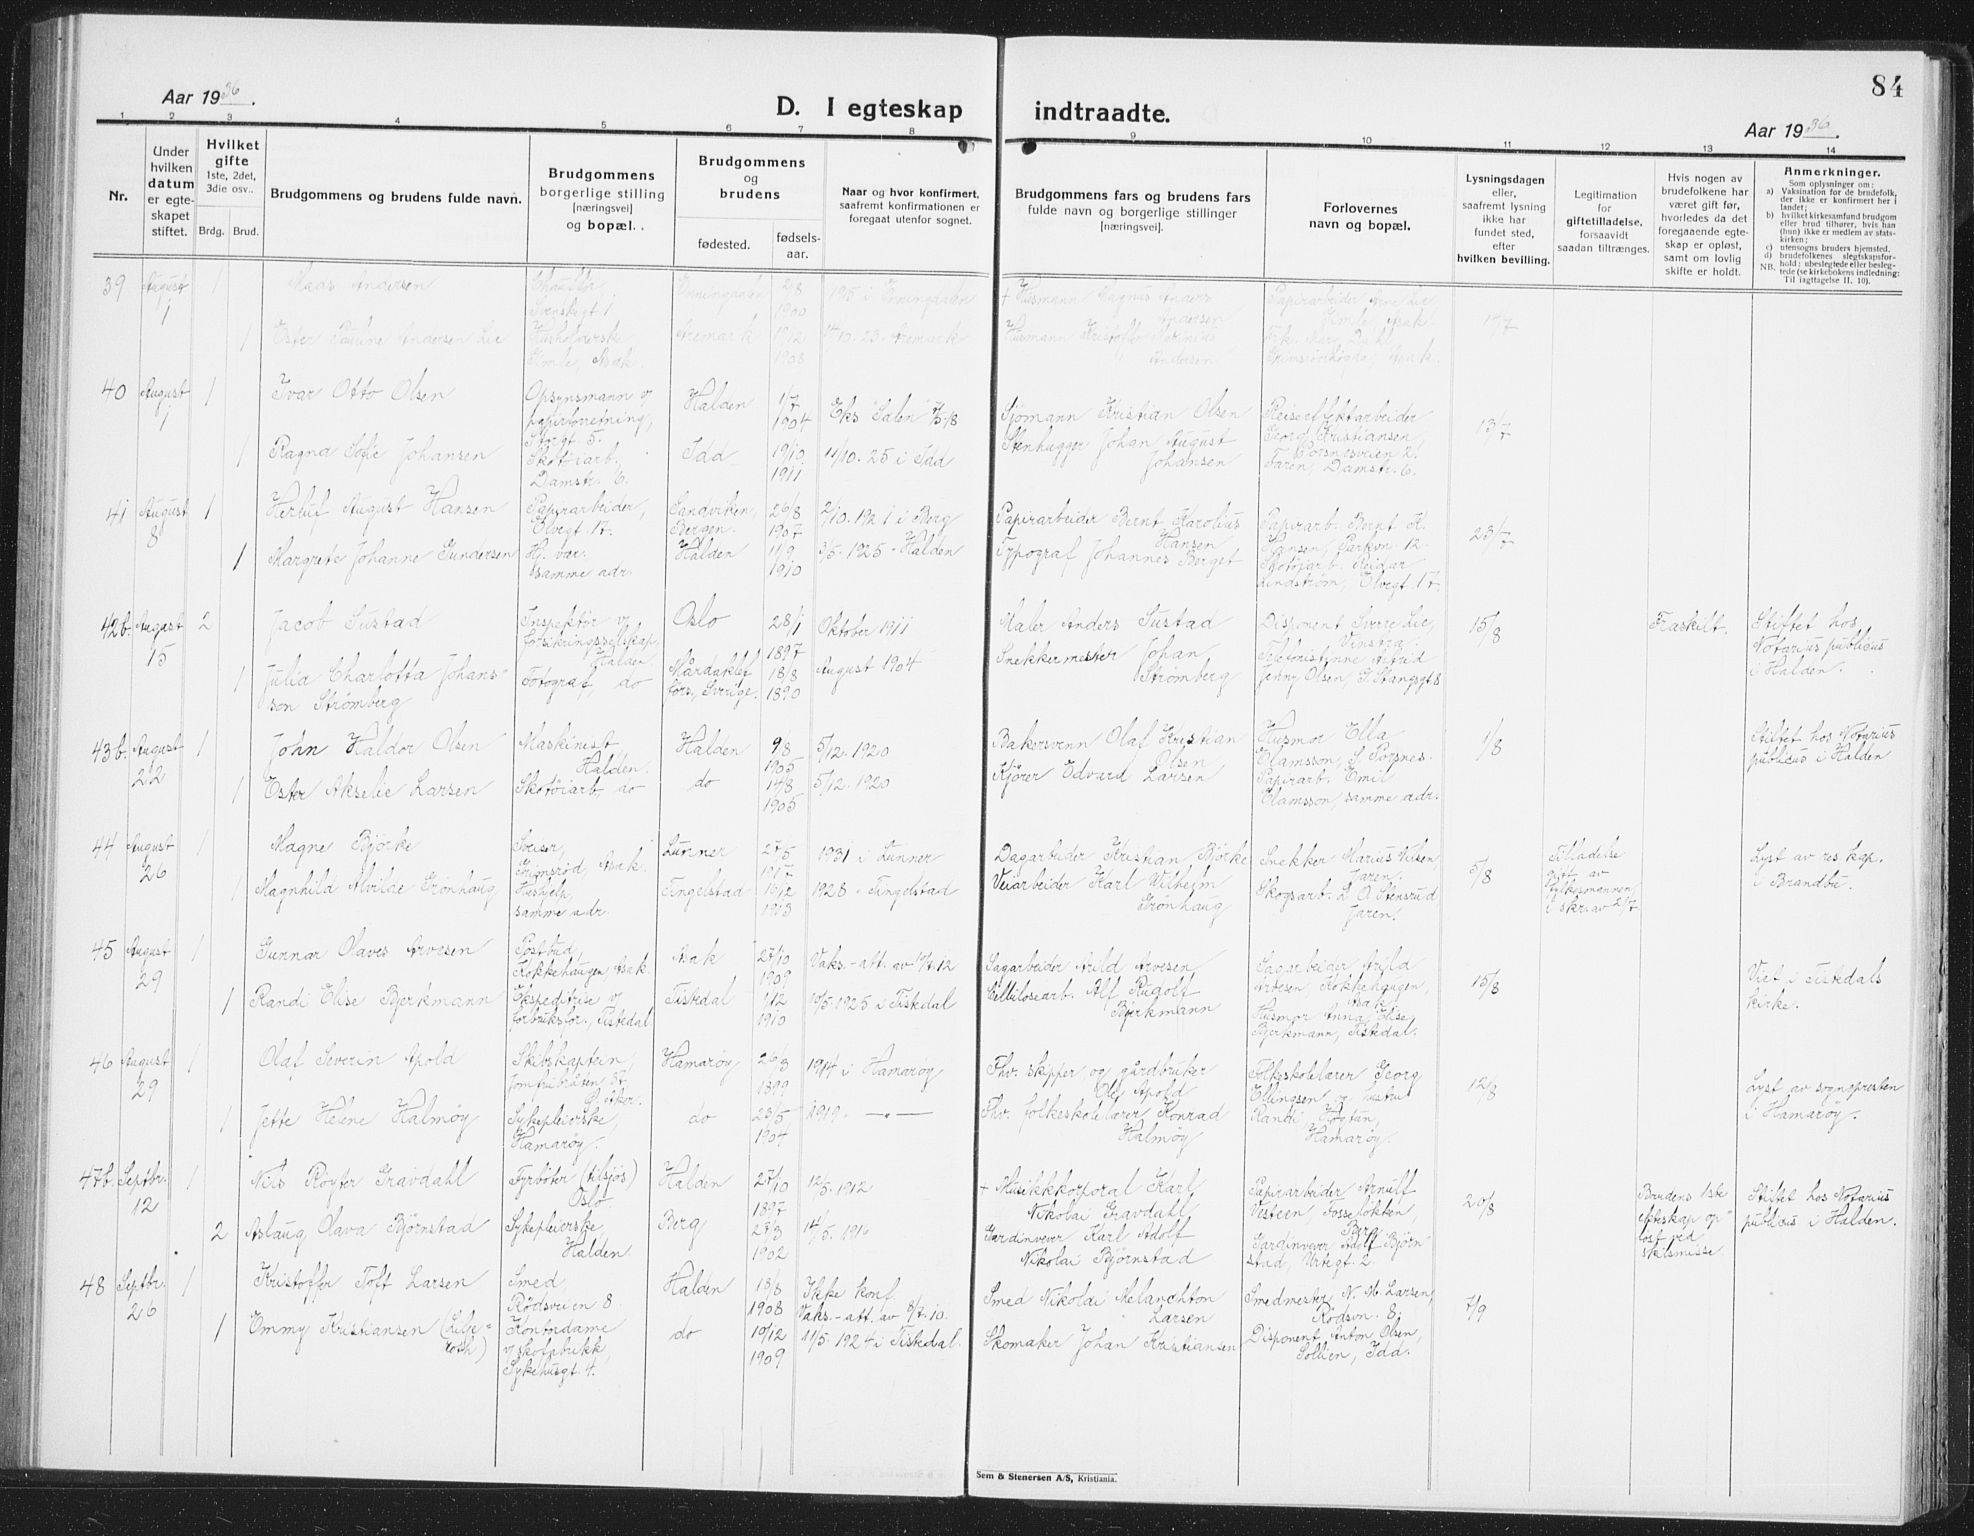 84
Aar 1936.
D. I egteskap indtraadte.
Aar 1936.
1 2 3 4 5 6 7 8 9 10 11 12 13 14
Nr.
Under hvilken datum er egteskapet stiftet.
Hvilket gifte
1ste, 2det, 3die osv..
Brdg. Brud.
Brudgommens og brudens fulde navn.
Brudgommens borgerlige stilling [næringsvei] og bopæl.
Brudgommens og brudens
fødested.
fødselsaar.
Naar og hvor konfirmert, saafremt konfirmationen er foregaat utenfor sognet.
Brudgommens fars og brudens fars fulde navn og borgerlige stillinger [næringsvei].
Forlovernes navn og bopæl.
Lysningsdagen eller, saafremt lysning ikke har fundet sted, efter hvilken bevilling.
Legitimation for giftetilladelse, forsaavidt saadan tiltrænges.
Hvis nogen av brudefolkene har været gift før, hvorledes da det foregaaende egteskap er opløst, samt om lovlig skifte er holdt.
Anmerkninger.
Som oplysninger om:
a) Vaksination for de brudefolk, der ikke er konfirmert her i landet;
b) hvilket kirkesamfund brudgom eller brud tilhører, hvis han (hun) ikke er medlem av statskirken;
c) utensogns bruders hjemsted.
d) brudefolkenes slegtskapsforhold; ubeslegtede eller beslegtede (se kirkebokens indledning:
NB. Til iagttagelse II. 10).
39 August 1 1 Andersen
28 1900
1915 i
+ Husmann Magnus Anders Andersen
Papirarbeider
17/7
1 Ester Pauline Andersen Lie
Aremark 19/12 1908
4/10. 23. Aremark
Andersen
40 August 1 1 Ivar Otto Olsen
Opsynsmann v papirforretning, Storgt. 5.
Halden 1/7 1904
Sjömann Kristian Olsen
Georg Kristiansen, Porsnesveien 2.
13/7
1 Ragna Sofie Johansen
Skotöiarb. Damstr. 6.
Idd 19/10 1911
11/10. 25 i Idd
Stenhugger Johan August Johansen
Faren, Damstr. 6.
41 August 8 1 Herluf August Hansen
Papirarbeider, Ölvegt. 17.
Sandviken, Bergen. 26/8 1907
2/10. 1921 i Berg
Papirarbeider Bernt Karolius Hansen
Papirarb. Bernt K. Hansen, Parkvn. 12.
23/7
1 Margrete Johanne Gundersen
H. vær. samme adr.
Halden 11/9 1910
3/5. 1925 - Halden
Typograf Johannes Berget
Skotöiarb. Reidar Lindström, Ölvegt. 17
42b. August 15 2 Jacob Sustad
Inspektör v forsikringsselskap, Halden.
Oslo 28/1 1897
Oktober 1911
Maler Anders Sustad
Disponent Sverre Lie, Vinstra.
15/8
Fraskilt.
Stiftet hos Notarius publicus i Halden.
1 Julia Charlotta Johansson Strömberg
Fotograf, do
Mårdaklef förs., Sverige. 18/8 1890
August 1904
Snekkermester Johan Strömberg
Telefonistinne Astrid Jenny Olsen, S. Stangsgt 8
43b. August 22 1 John Haldor Olsen
Maskinist Halden.
Halden 9/8 1905
5/12. 1920
Bakersvenn Olaf Kristian Olsen
Husmor Ella Olamsson, S. Porsnes.
1/8
Stiftet hos Notarius publicus i Halden
1 Ester Akselie Larsen
Skotöiarb. do
do 14/8 1905
5/12. 1920
Kjörer Edvard Larsen
Papirarb. Emil Olamsson, samme adr.
44 August 26 1 Magne Björke
Sveiser, Grimsröd, Asak.
Lunner 27/5 1917
1931 i Lunner
Dagarbeider Kristian Björke
Snekker Marius Nilsen, Jaren.
5/8
Tilladelse git av fylkesmannen i skr. av 21/7
Lyst av res. kap. i Brandbu.
1 Magnhild Alvilde Grönhaug
Hushjelp, samme adr.
Tingelstad 16/12 1913
1928 - Tingelstad
Veiarbeider Karl Wilhelm Grönhaug
Skogsarb. L. O. Stensrud Jaren.
45 August 29 1 Gunnar Olaves Arvesen
Postbud, Kokkehaugen, Asak.
Asak 27/10 1909
Sagarbeider Arild Arvesen
Sagarbeider Arild Arvesen, Kokkehaugen, Asak
15/8
Viet i Tistedals kirke.
1 Randi Elise Bjerkmann
Ekspeditrise v forbruksfor., Tistedal
Tistedal 1/12 1910
10/5. 1925 i Tistedal
Cellulosearb. Alf Rudolf Bjerkmann
Husmor Anna Elise Bjerkmann, Tistedal.
46 August 29 1 Olaf Severin Apold
Skibskaptein, Jomfrubråten 57, Ö. Aker.
Hamaröy 26/3 1899
1914 i Hamaröy
Fhv. skipper og gårdbruker Ole Apold
Folkeskolelærer Georg Ellingsen og hustru Randi Hamaröy.
12/8
Lyst av sognepresten i Hamaröy.
1 Jette Helene Halmöy
Sykepleierske, Hamaröy.
do 23/5 1904
1919. —"—
Fhv. folkeskolelærer Konrad Halmöy
47b. Septbr. 12 1 Nils Röyter Gravdahl
Fyrböter (tilsjös) Oslo.
Halden 27/10 1897
12/5. 1912
+ Musikkkorporal Karl Nikolai Gravdahl
Papirarbeider Arnulf Vesteen, Fosselökken, Berg.
20/8
Brudens 1ste ekteskap oplöst ved skilsmisse
Stiftet hos Notarius publicus i Halden.
2 Aslaug Olava Björnstad
Sykepleierske Halden.
Berg 23/3 1902
14/5. 1916
Gardinvever Karl Adolf Nikolai Björnstad
Gardinvever Adolf Björnstad, 2.
48 Septbr. 26 1 Kristoffer Toft Larsen
Smed, Rödsveien 8.
Halden 18/8 1908
Ikke konf. Vaks.-att. av 8/7.10.
Smed Nikolai Melanchton Larsen
Smedmester N. M. Larsen, Rödsvn. 8.
7/9
1 Emmy Kristiansen (Liljeroth)
Kontordame v skofabrikk, Sykehusgt. 4.
do 10/12 1909
11/5. 1924 i Tistedal.
Skomaker Johan Kristiansen
Disponent Anton Olsen, Sollien, Idd.
Sem & Stenersen A/S, Kristiania.